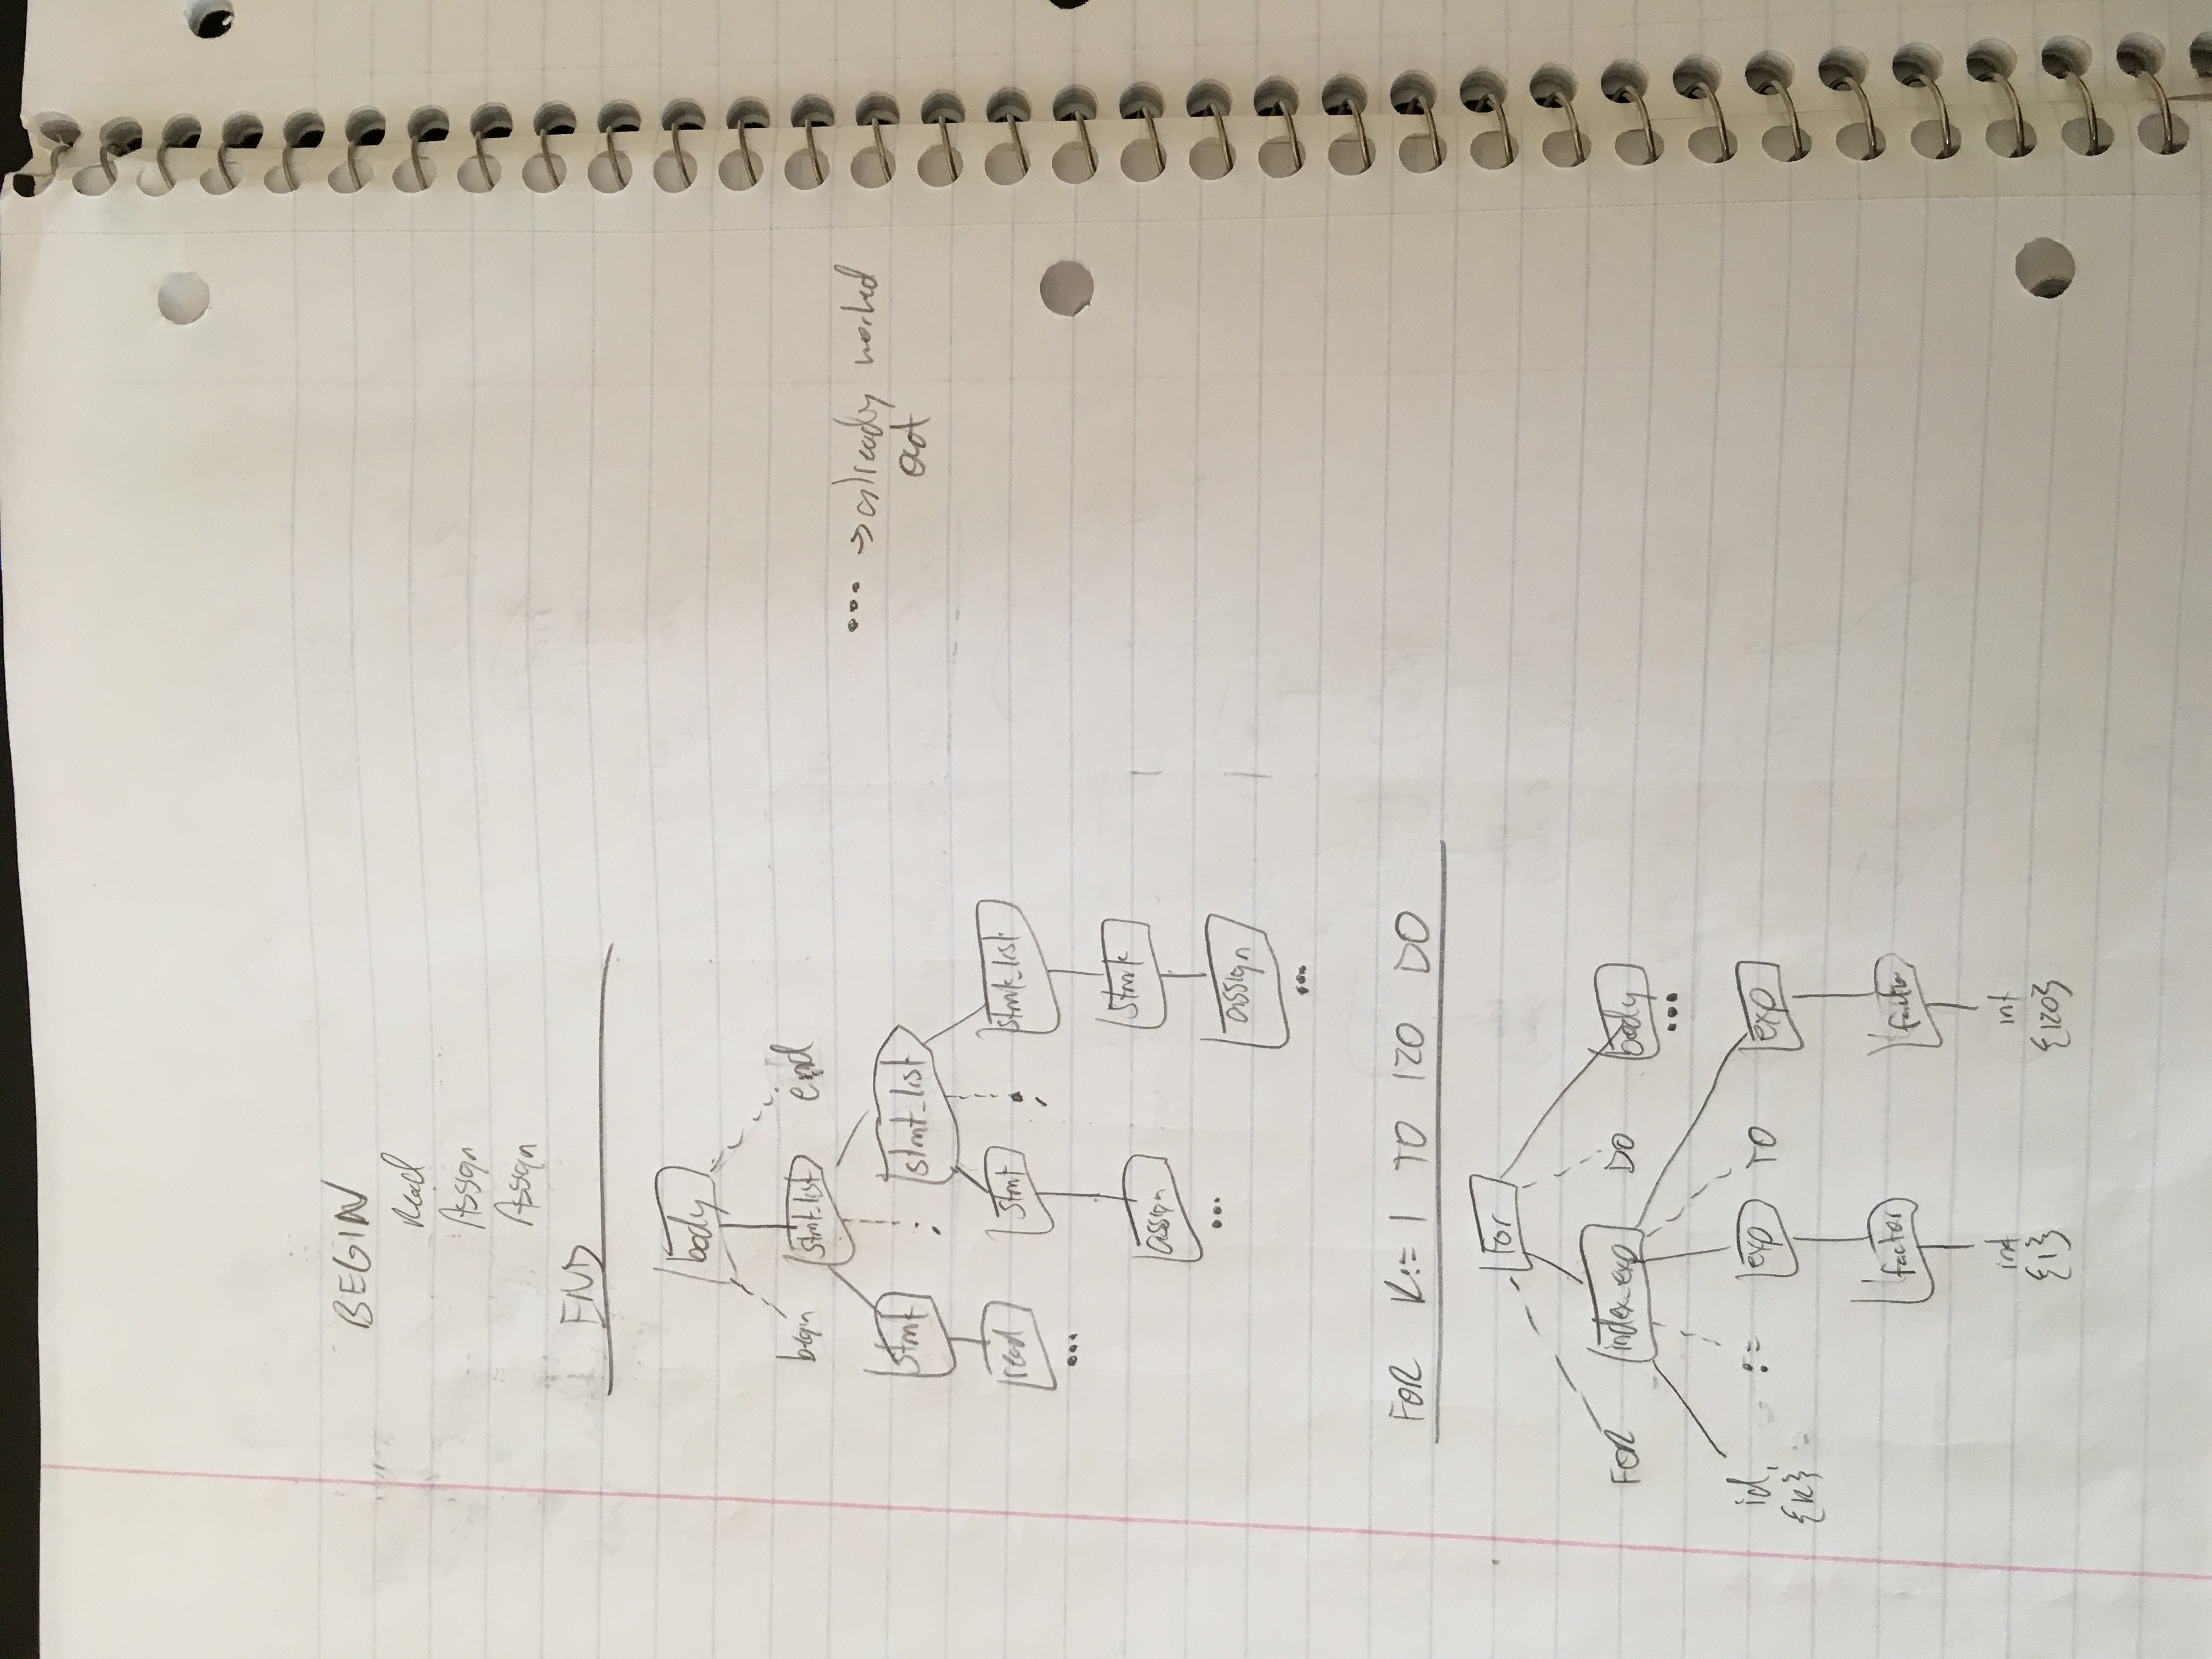 BEGIN
Read
Assign
Assign
END
body
begin stmt_list end
stmt ; stmt_list
read stmt ; stmt_list
...
assign stmt
...
assign
...
... → already worked
out
FOR K:= 1 TO 120 DO
For
FOR index_exp DO body
...
id := exp TO exp
{K}
factor factor
int int
{1} {120}